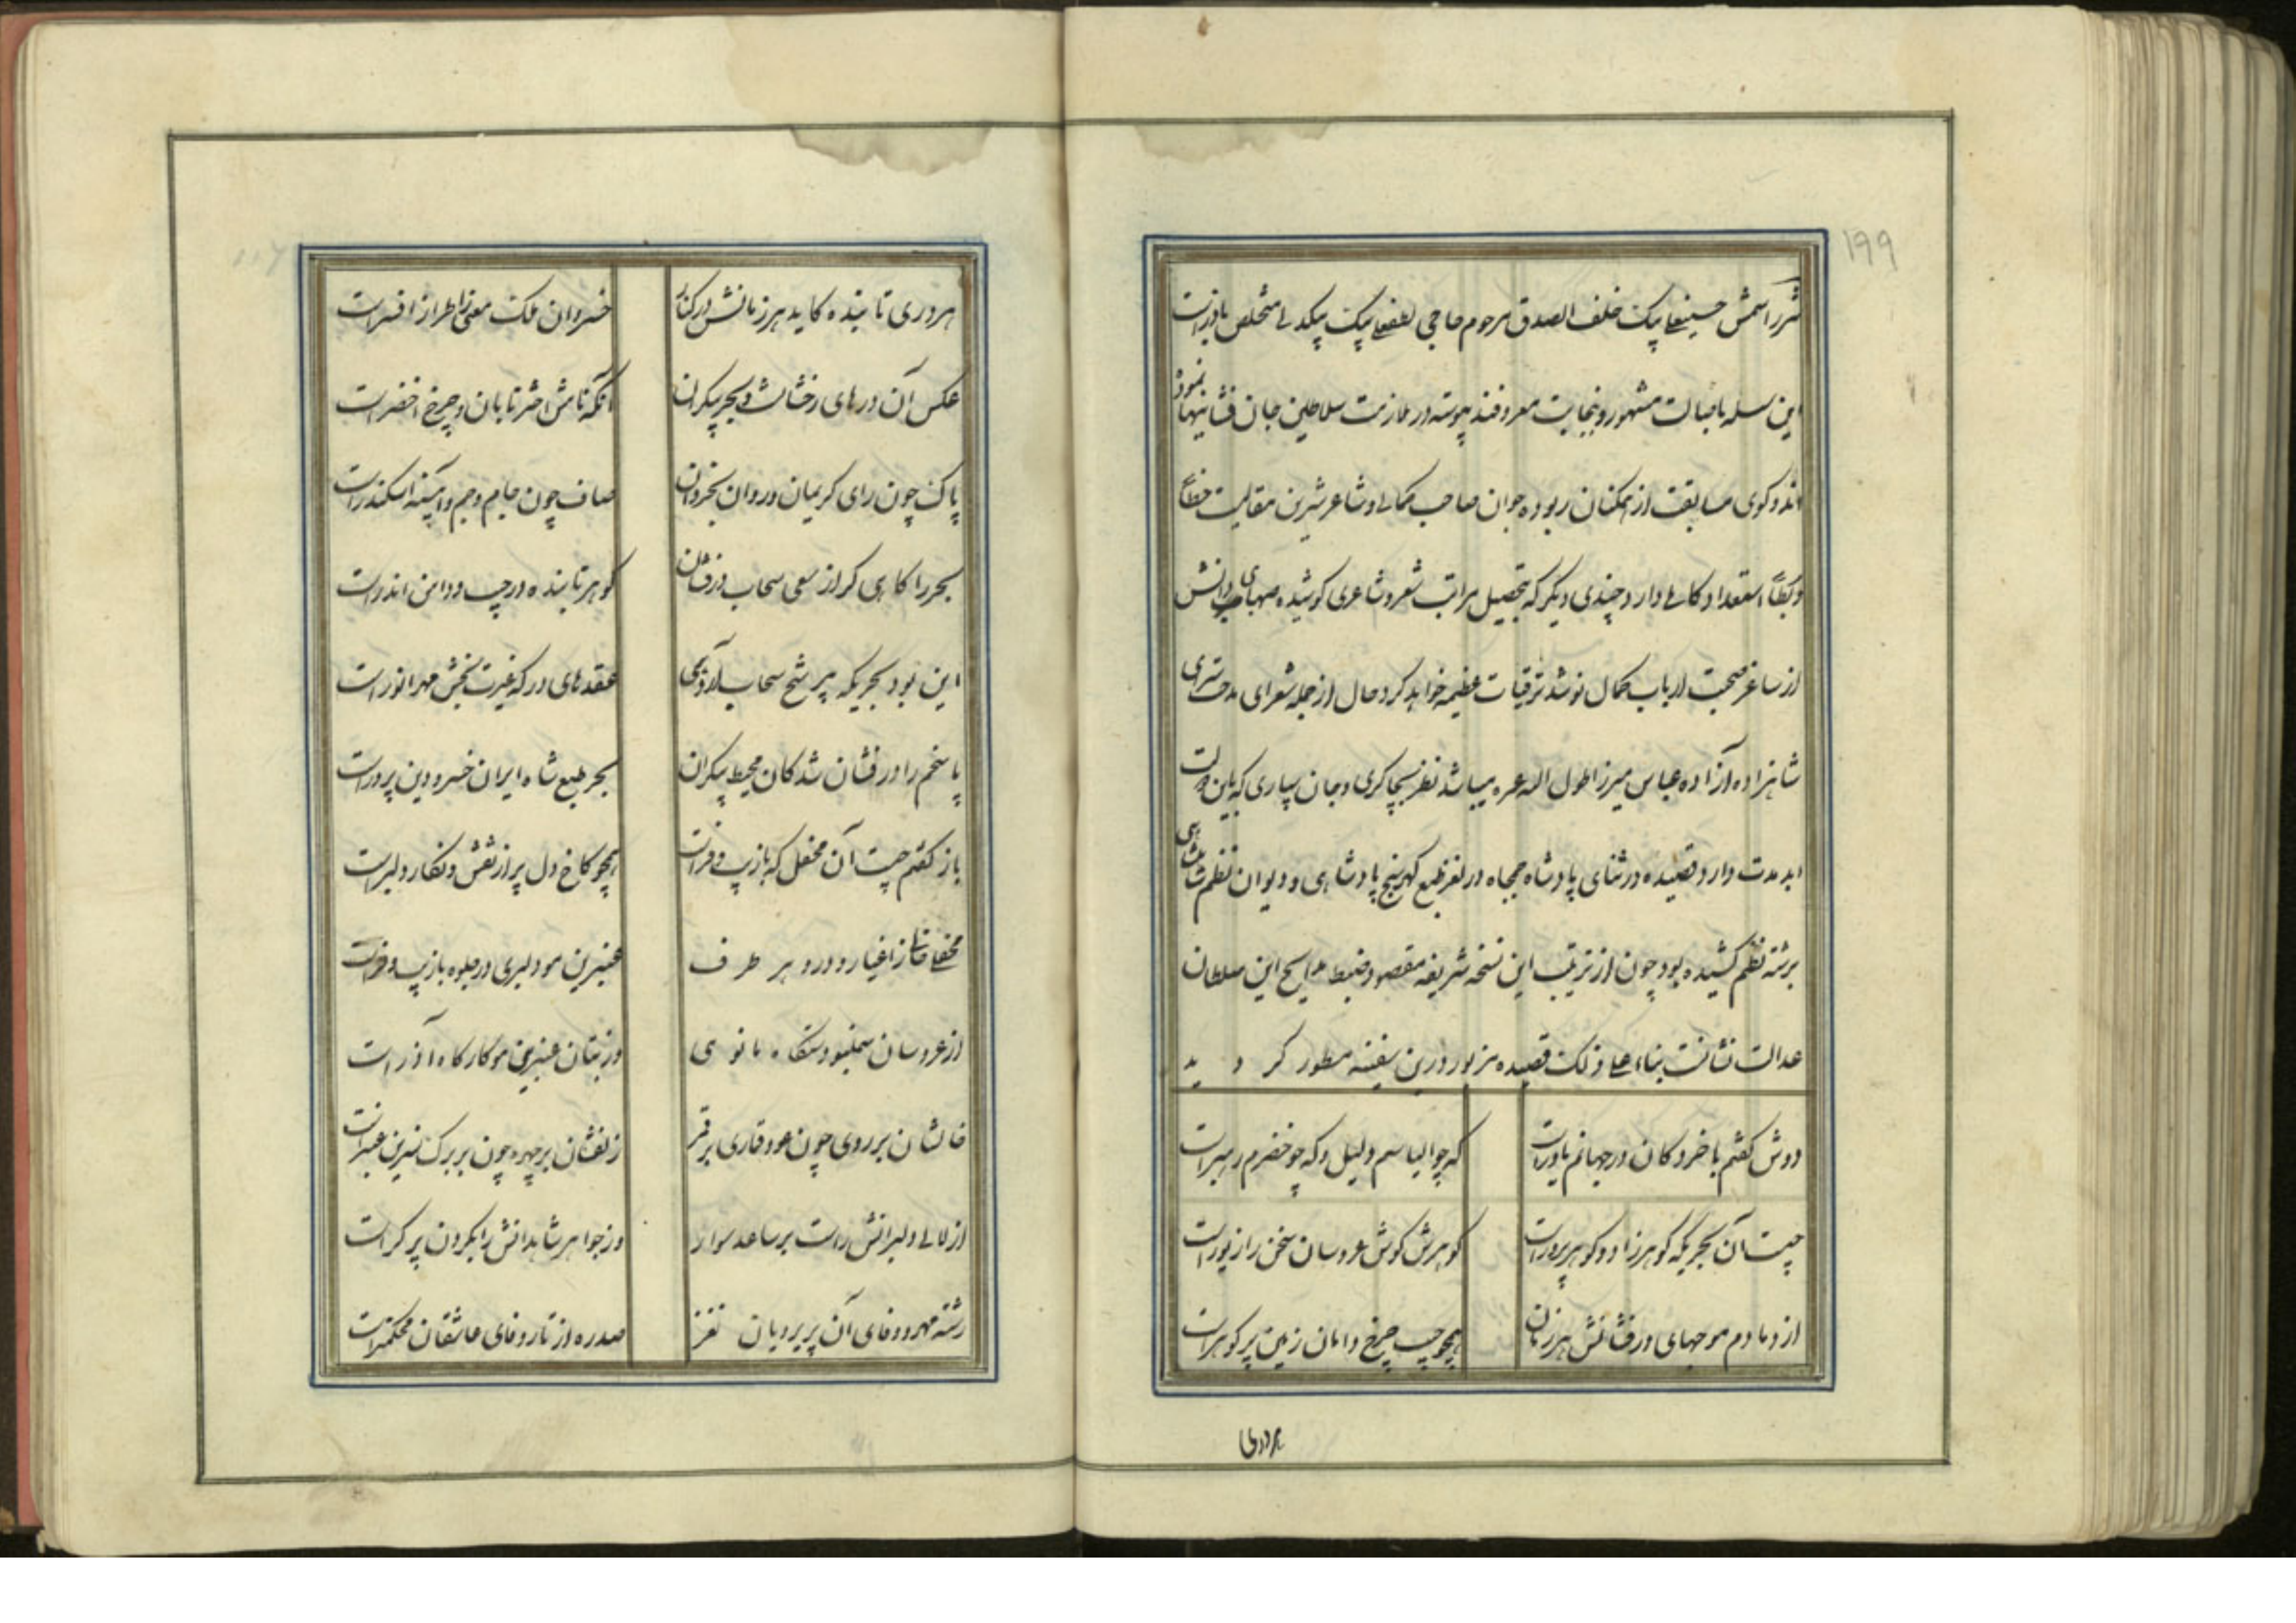 ۱۹۹
شرر اسمش حسینعلی بیک خلف الصدق مرحوم حاجی لطفعلی بیک بیکدلی متخلص باذر است
این سلسله باصالت مشهور و بنجابت معروفند پیوسته در ملازمت سلاطین جان فشانیها نموده
اند و کوی مسابقت از همکنان ربوده جوان صاحب کمالی و شاعر شیرین مقالیست خطاً
و ربطاً استعداد کاملی دارد چندی دیکر که بتحصیل مراتب شعر و شاعری کوشیده صهبای دانش
از ساغر صحبت ارباب کمال نوشد ترقیات عظیمه خواهد کرد حال از جمله شعرای مدحت سرای
شاهزاده آزاده عباس میرزا طول اله عمره میباشد نظر بچاکری و جان سپاری که باین دولت
ابد مدت دارد قصیده در ثنای پادشاه جمجاه در نغز طبع کهرسنج پادشاهی و دیوان نظم شاهنشاهی
برشته نظم کشیده بود چون از ترتیب این نسخه شریفه مقصود ضبط مدایح این سلطان
عدالت نشانست بناء علی ذلک قصیده مزبور درین سفینه مسطور کر د ید
دوش کفتم با خرد کان در جهانم یاور است که چو الیاسم دلیل و که چو خضرم رهبر است
چیست آن بحریکه کوهرزاد و کوهرپرور است کوهرش کوش عروسان سخن را زیور است
از دمادم موجهای درفشانش هر زمان همچو جیب چرخ دامان زمین پر کوهر است
هر دری
هر دری تابنده کاید هر زمانش در کنار خسروان ملک معنی را طراز افسر است
عکس آن درهای رخشانست در بحر بیکران آنکه نامش اختر تابان و چرخ اخضر است
پاک چون رای کریمان و روان بخردان صاف چون جام جم و آیینه اسکندر است
بحر را کاهی کر از سعی سحاب درفشان کوهر تابنده در جیب و دامن اندر است
این بود بحریکه بی رشح سحاب آرد همی عقدهای در که غیرت بخش مهر انور است
پاسخم را درفشان شد کان محیط بیکران بحر طبع شاه ایران خسرو دین پرور است
باز کفتم چیست آن محفل که با زیب و فر است همچو کاخ دل پر از نقش و نکار دلبر است
محفلی خالی ز اغیار و درو هر طرف عنبرین مو دلبری در جلوه با زیب و فر است
از عروسان سمنبو دستکاه مانوی وز بتان عنبرین مو کارکاه آذر است
خالشان بر روی چون عود قماری بر قمر زلفشان بر چهره چون بر برک نسرین عنبر است
از لالی دلبرانش راست بر ساعد سوار وز جواهر شاهدانش را بکردن پر کر است
رشته مهر و وفای آن پریرویان نغز صدره از تار وفای عاشقان محکمتر است